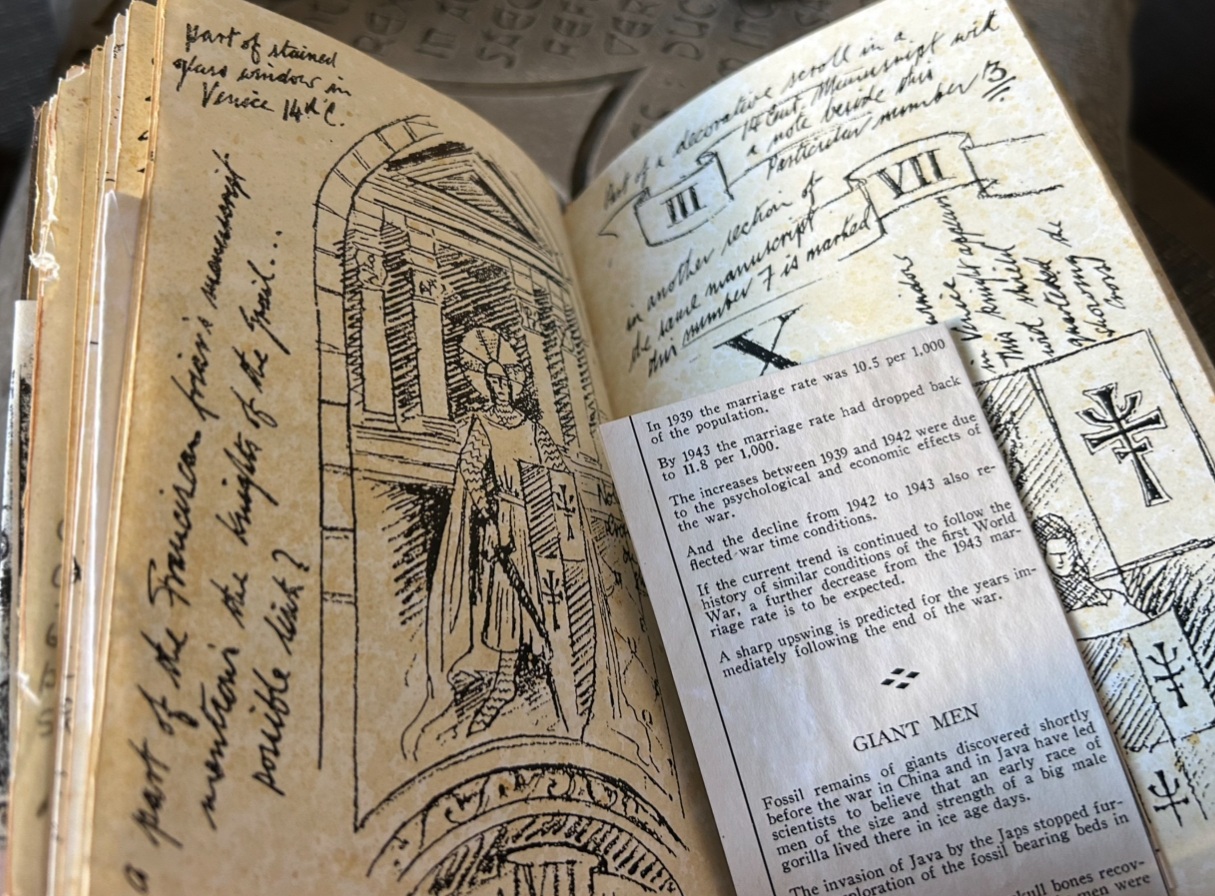 part of stained
glass window in
Venice 14th C.
a part of the Franciscan friar's manuscript
mentions the knights of the Grail...
possible link?
part of a decorative scroll in a
14 Cent. Manuscript with
a note beside this
Particular number 3
III
VII
in another section of
the same manuscript
this number 7 is marked
X
in Venice
This knight appears
said shield
bearing the
In 1939 the marriage rate was 10.5 per 1,000
of the population.
By 1943 the marriage rate had dropped back
to 11.8 per 1,000.
The increases between 1939 and 1942 were due
to the psychological and economic effects of
the war.
And the decline from 1942 to 1943 also re-
flected war time conditions.
If the current trend is continued to follow the
history of similar conditions of the first World
War, a further decrease from the 1943 mar-
riage rate is to be expected.
A sharp upswing is predicted for the years im-
mediately following the end of the war.
GIANT MEN
Fossil remains of giants discovered shortly
before the war in China and in Java have led
scientists to believe that an early race of
men of the size and strength of a big male
gorilla lived there in ice age days.
The invasion of Java by the Japs stopped fur-
exploration of the fossil bearing beds in
skull bones recov-
were
VII